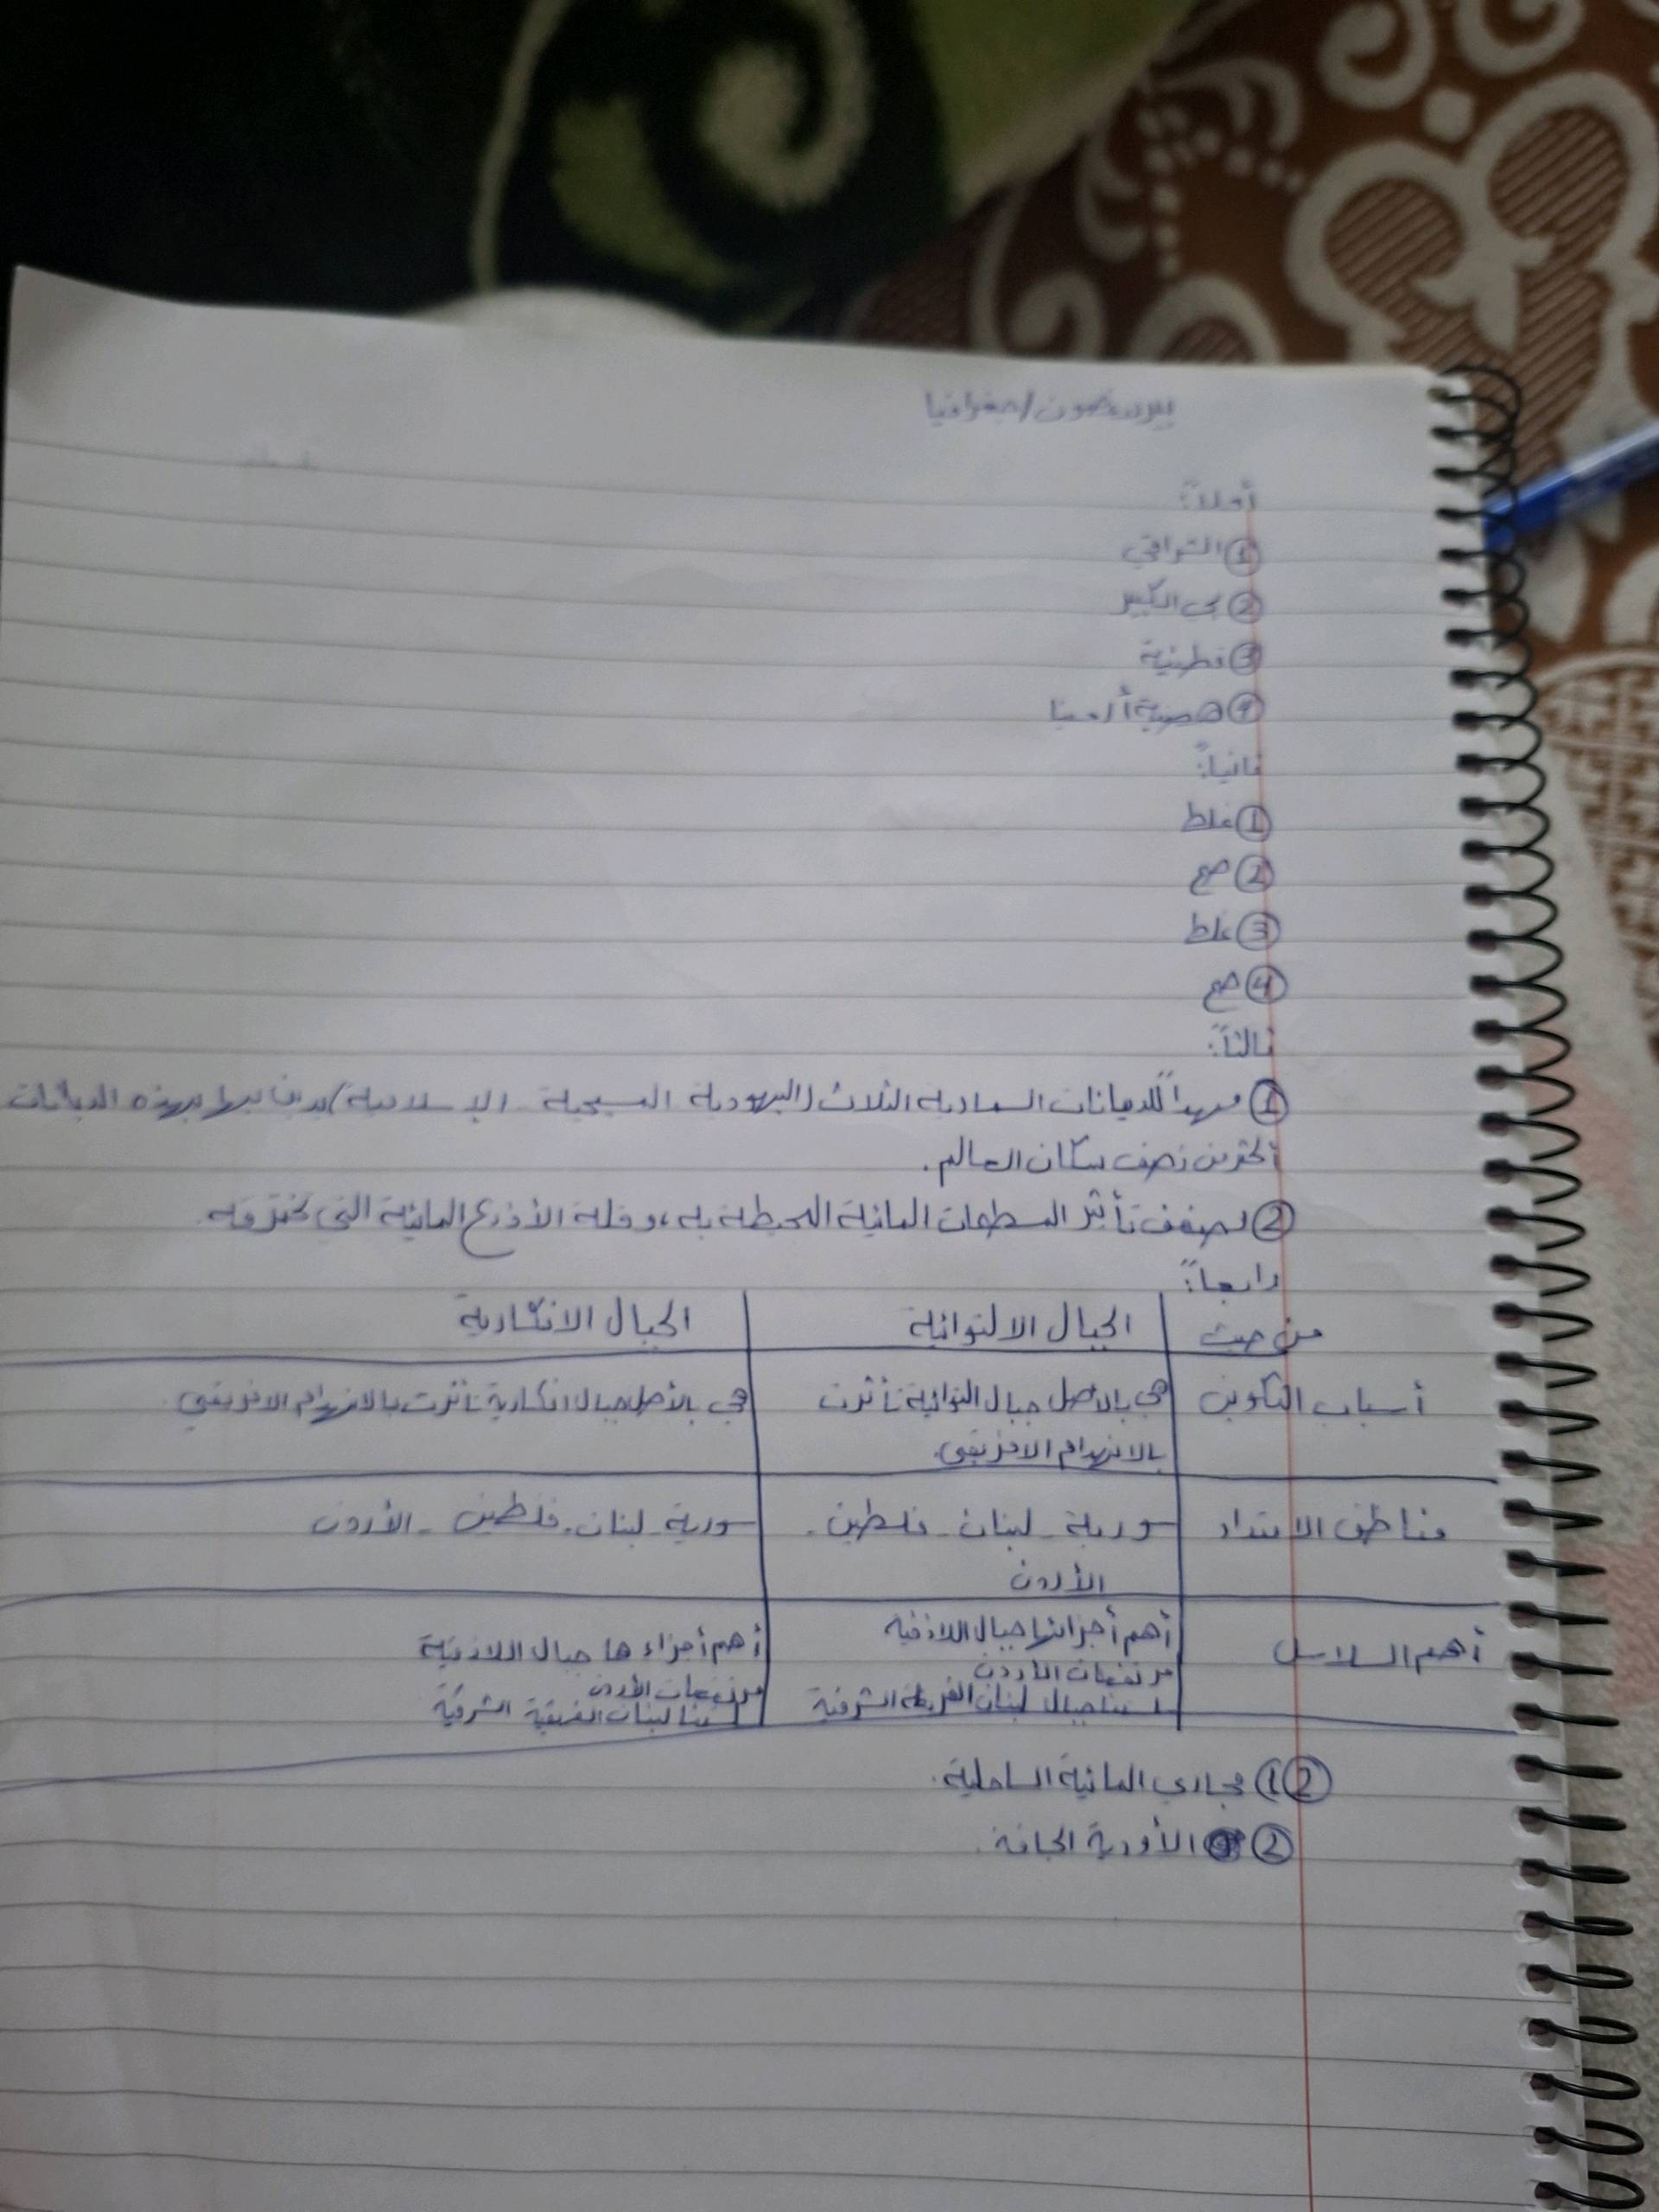 أولاً:
① الشرافي
② الكبير
③ قطينية
④ هضبة أرمينا
ثانياً:
① غلط
② صح
③ غلط
④ صح
ثالثاً:
① مهداً للديانات السماوية الثلاث (اليهودية المسيحية الإسلامية) بهذه الديانات
أكثر من نصف سكان العالم.
② لضعف تأثير المسطحات المائية المحيطة به، وقلة الأذرع المائية التي تخترقه
رابعاً:
من حيث | الجبال الالتوائية | الجبال الانكسارية
أسباب التكوين | هي بالأصل جبال التوائية تأثرت | هي بالأصل جبال انكسارية تأثرت بالانهدام الافريقي
بالانهدام الافريقي.
مناطق الامتداد | سورية - لبنان - فلسطين - | سورية - لبنان - فلسطين - الأردن
الأردن
أهم السلاسل | أهم أجزائها جبال اللاذقية | أهم أجزاء ها جبال اللاذقية
مرتفعات الأردن | مرتفعات الأردن
جبال لبنان الغربية الشرقية | لبنان الغربية الشرقية
② ① مجاري المائية الساحلية.
② الأودية الجافة.